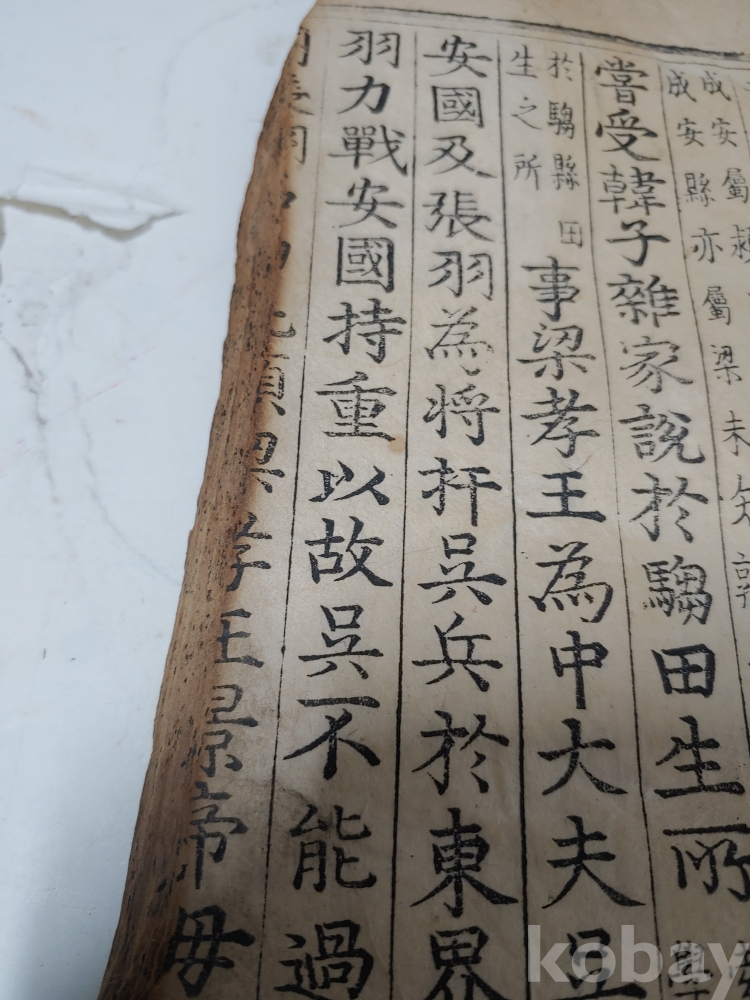 成安屬潁
成安縣亦屬梁未知
嘗受韓子雜家說於騶田生所
於騶縣田
生之所
事梁孝王為中大夫吳
安國及張羽為將扞吳兵於東界
羽力戰安國持重以故吳不能過
梁孝王景帝母
kobay